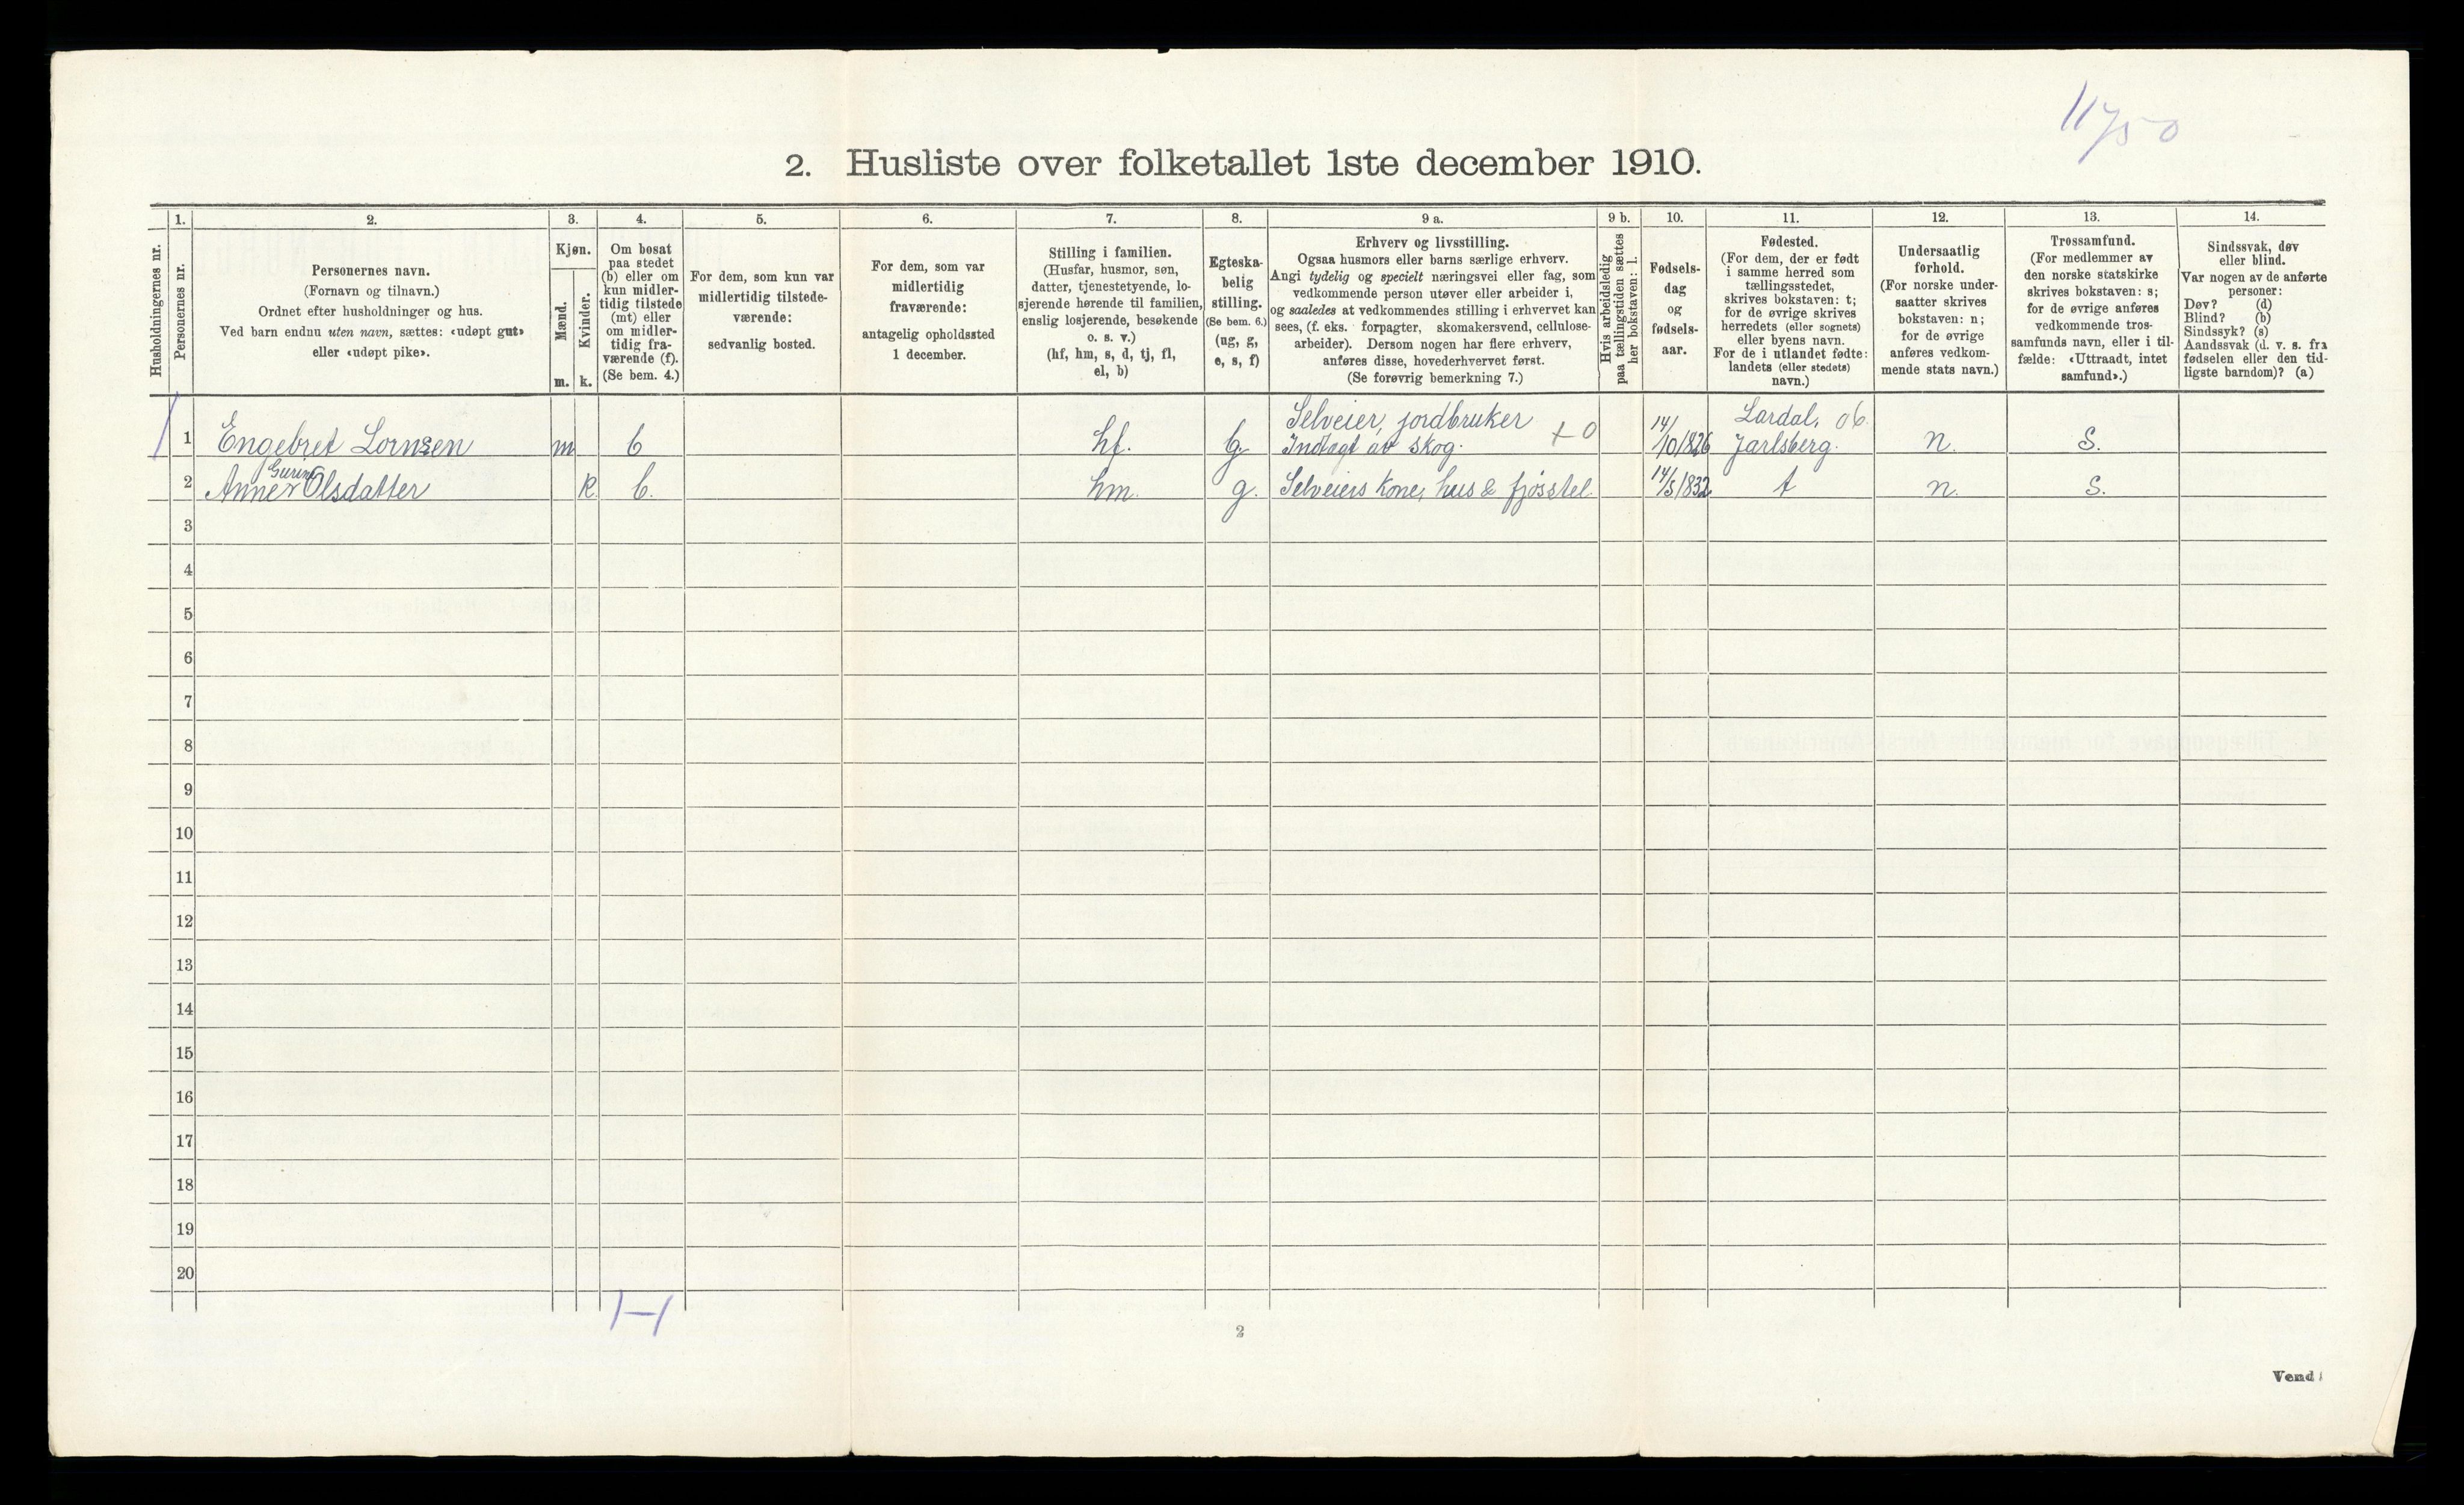 11/50
2. Husliste over folketallet 1ste december 1910.
Husholdningernes nr.
1.
Personernes nr.
2.
Personernes navn.
(Fornavn og tilnavn.)
Ordnet efter husholdninger og hus.
Ved barn endnu uten navn, sættes: «udøpt gut»
eller «udøpt pike».
3.
Kjøn.
Mænd.
Kvinder.
m. k.
4.
Om bosat
paa stedet
(b) eller om
kun midler-
tidig tilstede
(mt) eller
om midler-
tidig fra-
værende (f).
(Se bem. 4.)
5.
For dem, som kun var
midlertidig tilstede-
værende:
sedvanlig bosted.
6.
For dem, som var
midlertidig
fraværende:
antagelig opholdssted
1 december.
7.
Stilling i familien.
(Husfar, husmor, søn,
datter, tjenestetyende, lo-
sjerende hørende til familien,
enslig losjerende, besøkende
o. s. v.)
(hf, hm, s, d, tj, fl,
el, b)
8.
Egteska-
belig
stilling.
(Se bem. 6.)
(ug, g,
e, s, f)
9 a.
Erhverv og livsstilling.
Ogsaa husmors eller barns særlige erhverv.
Angi tydelig og specielt næringsvei eller fag, som
vedkommende person utøver eller arbeider i,
og saaledes at vedkommendes stilling i erhvervet kan
sees, (f. eks. forpagter, skomakersvend, cellulose-
arbeider). Dersom nogen har flere erhverv,
anføres disse, hovederhvervet først.
(Se forøvrig bemerkning 7.)
9 b.
Hvis arbeidsledig
paa tællingstiden sættes
her bokstaven: l.
10.
Fødsels-
dag
og
fødsels-
aar.
11.
Fødested.
(For dem, der er født
i samme herred som
tællingsstedet,
skrives bokstaven: t;
for de øvrige skrives
herredets (eller sognets)
eller byens navn.
For de i utlandet fødte:
landets (eller stedets)
navn.)
12.
Undersaatlig
forhold.
(For norske under-
saatter skrives
bokstaven: n;
for de øvrige
anføres vedkom-
mende stats navn.)
13.
Trossamfund.
(For medlemmer av
den norske statskirke
skrives bokstaven: s;
for de øvrige anføres
vedkommende tros-
samfunds navn, eller i til-
fælde: «Uttraadt, intet
samfund».)
14.
Sindssvak, døv
eller blind.
Var nogen av de anførte
personer:
Døv? (d)
Blind? (b)
Sindssyk? (s)
Aandssvak (d. v. s. fra
fødselen eller den tid-
ligste barndom)? (a)
Selveier, jordbruker Lardal, 06
1 Engebret Lornsen m b hf. g. Indtægt av skog. + 0 14/10/826 Jarlsberg. n. S.
Gurine
2 Anne Olsdatter k b. hm. g. Selveiers kone, hus & fjøsstel 14/5/832 t n. S.
3
4
5
6
7
8
9
10
11
12
13
14
15
16
17
18
19
20
1-1
2
Vend!